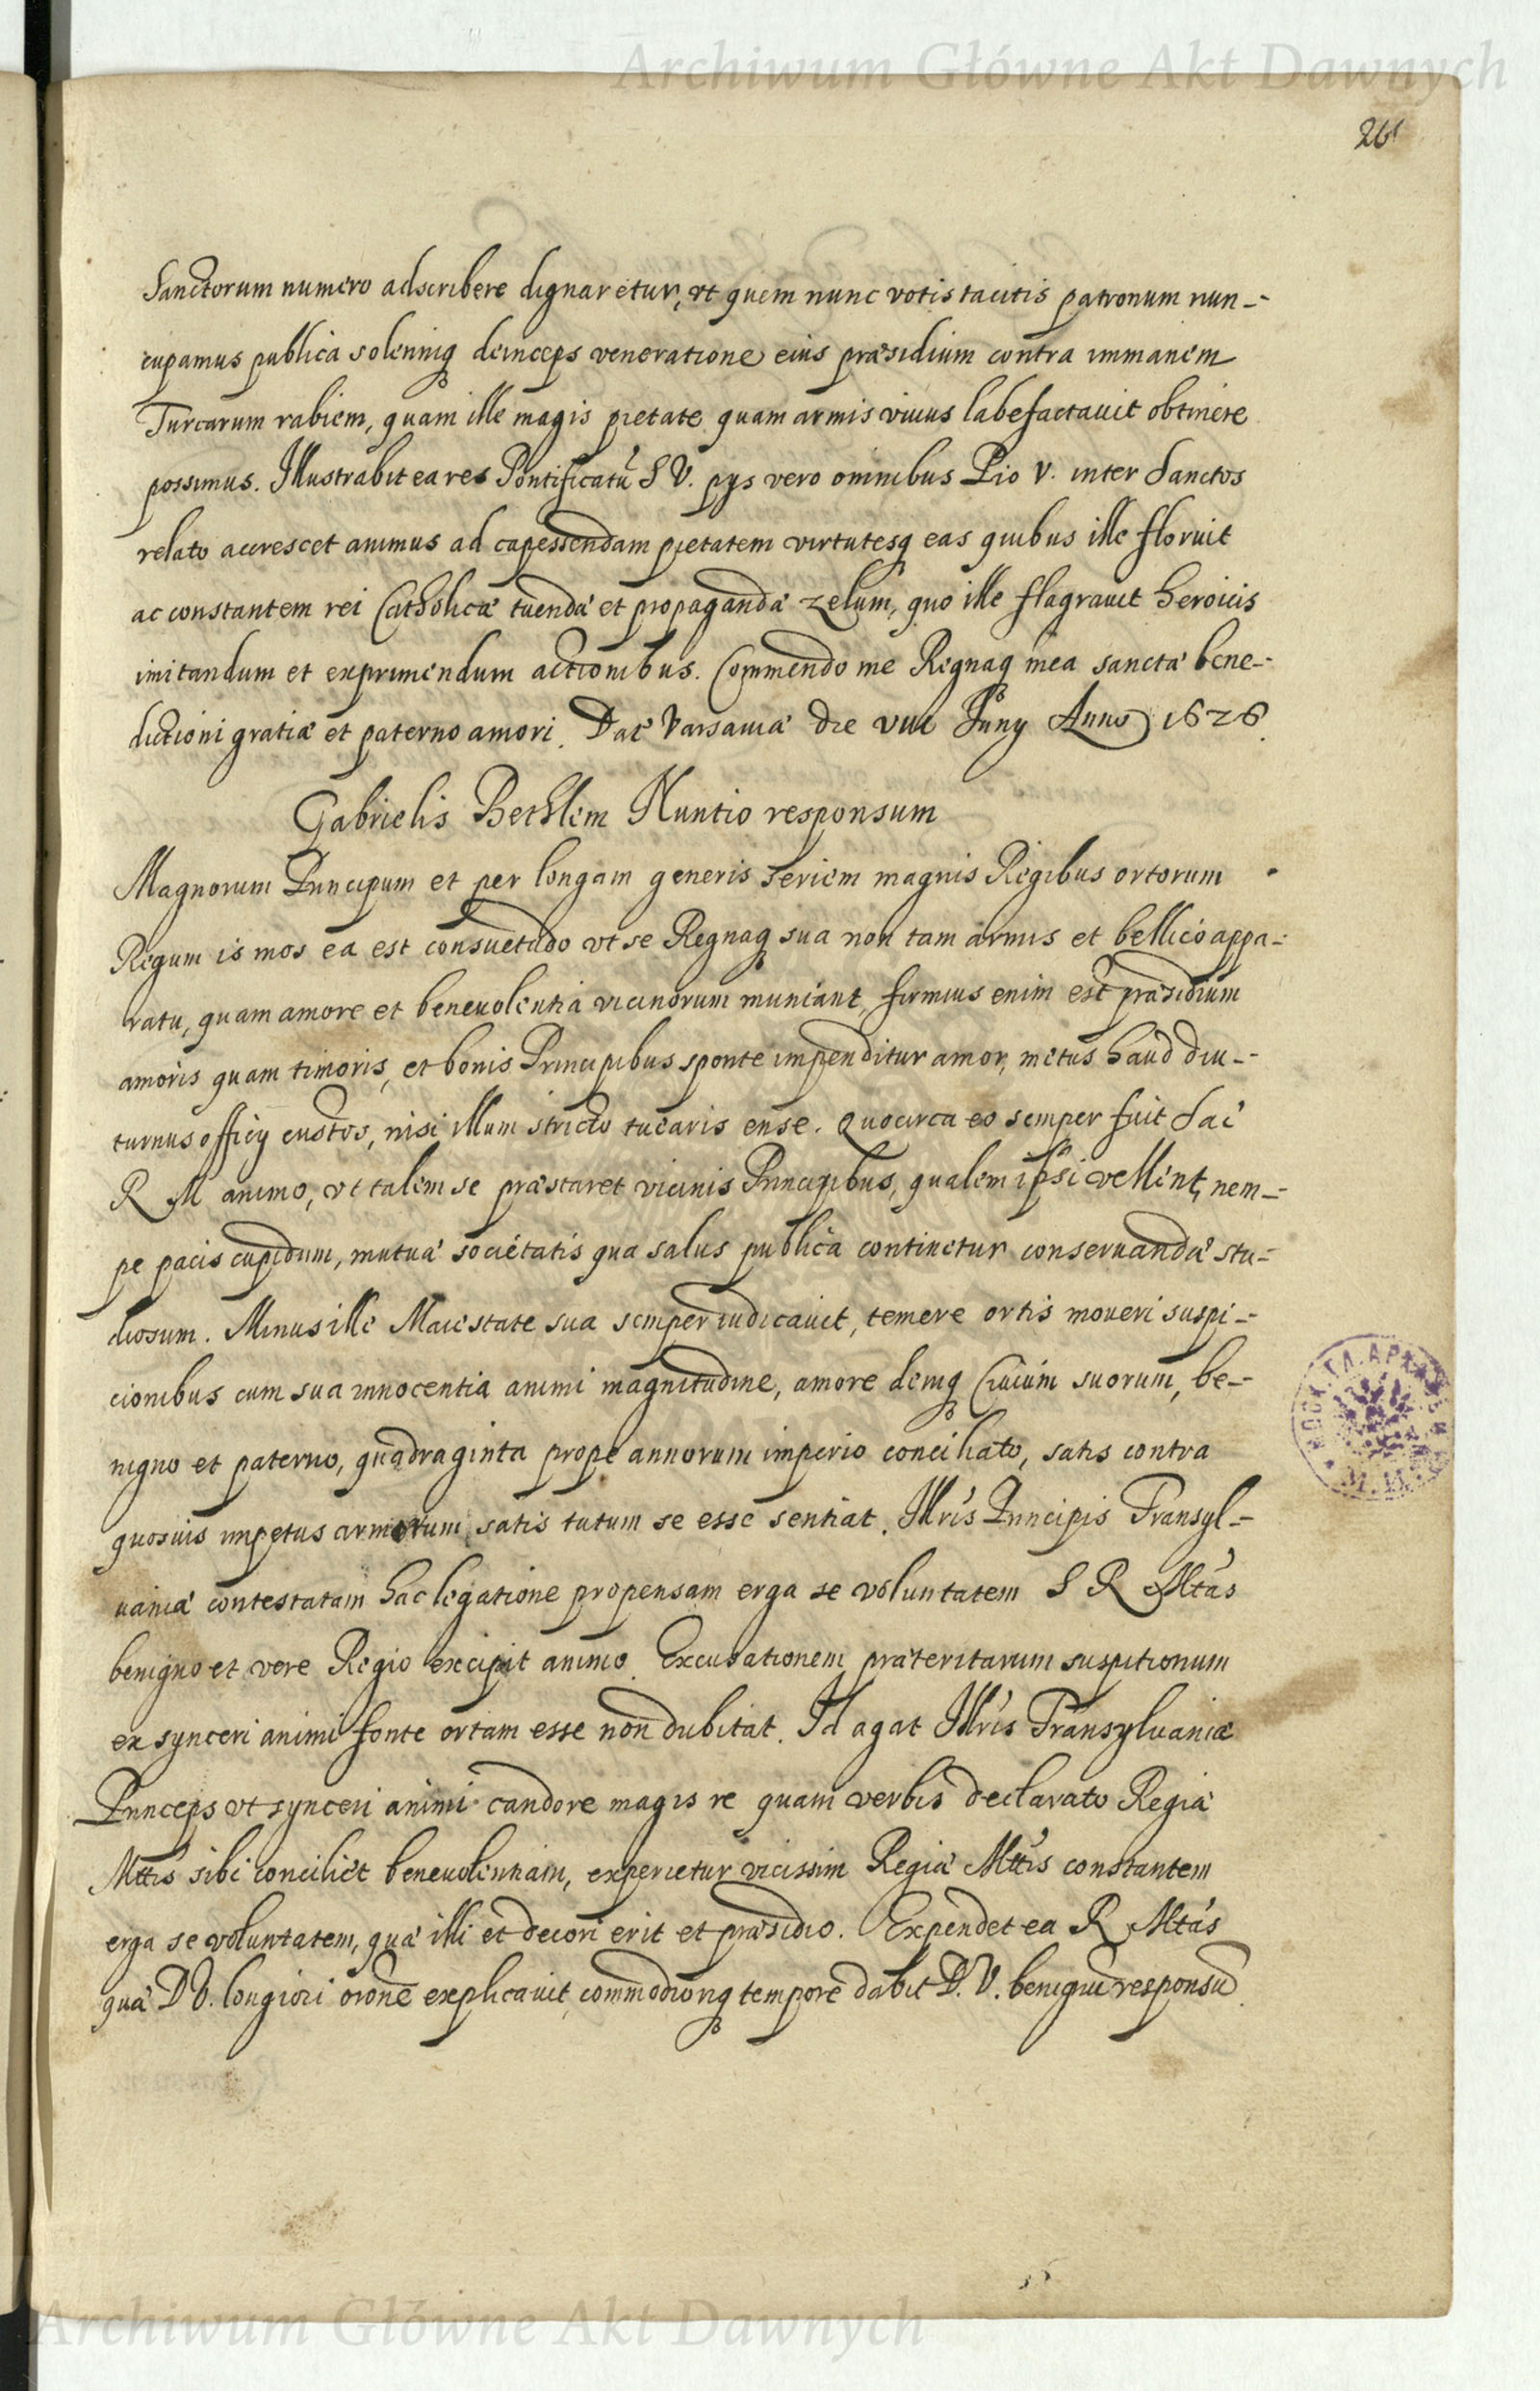 Archiwum Główne Akt Dawnych
26
Sanctorum numero adscribere dignaretur, vt quem nunc votis tacitis patronum nun-
cupamus publica solenniq deinceps veneratione eius præsidium contra immanem
Turcarum rabiem, quam ille magis pietate quam armis viuus labefactauit obtinere
possimus. Illustrabit ea res Pontificatū S V. pys vero omnibus Pio V. inter Sanctos
relato accrescet animus ad capessendam pietatem virtutesq eas quibus ille floruit
ac constantem rei Catholicæ tuendæ et propagandæ zelum, quo ille flagrauit heroicis
imitandum et exprimendum actionibus. Commendo me Regnaq mea sanctæ bene-
dictioni gratiæ et paterno amori. Dat Varsauiæ die Juny Anno 1626.
Gabrielis Bethlem Nuntio responsum
Magnorum Principum et per longam generis seriem magnis Regibus ortorum
Regum is mos ea est consuetudo vt se Regnaq sua non tam armis et bellico appa-
ratu, quam amore et beneuolentia vicinorum muniant, firmius enim est præsidium
amoris quam timoris, et bonis Principibus sponte impenditur amor, metus haud diu-
turnus officy custos, nisi illum stricto tuearis ense. Quocirca eo semper fuit Sac
R M animo, vt talem se præstaret vicinis Principibus, qualem ipsi vellent, nem-
pe pacis cupidum, mutuæ societatis qua salus publica continetur conseruandæ stu-
diosum. Minus ille Maiestate sua semper iudicauit, temere ortis moueri suspi-
cionibus cum sua innocentia animi magnitudine, amore deniq Ciuium suorum, be-
nigno et paterno, quadraginta prope annorum imperio conciliato, satis contra
quosuis impetus armatum satis tutum se esse sentiat. Illris Principis Transyl-
uaniæ contestatam hac legatione propensam erga se voluntatem S R Mtas
benigno et vere Regio excipit animo. Excusationem præteritarum suspitionum
ex synceri animi fonte ortam esse non dubitat. Id agat Illris Transyluaniæ
Princeps vt synceri animi candore magis re quam verbis declarato Regiæ
Mttis sibi conciliet beneuolentiam, experietur vicissim Regiæ Mttis constantem
erga se voluntatem, quæ illi et decori erit et præsidio. Expendet ea R Mtas
quæ D V. longiori orone explicauit, commodioriq tempore dabit D. V. benignū responsū.
Archiwum Główne Akt Dawnych